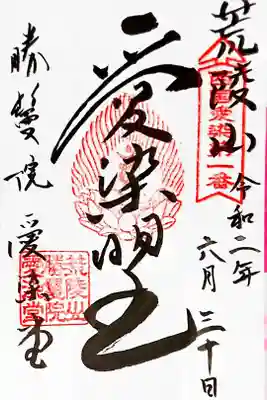 荒陵山
令和二年
六月三十日
愛染明王
勝鬘院
愛染堂
荒陵山
勝鬘院
愛染堂